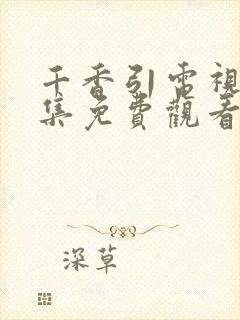 千香引電視
集免費觀看
深草